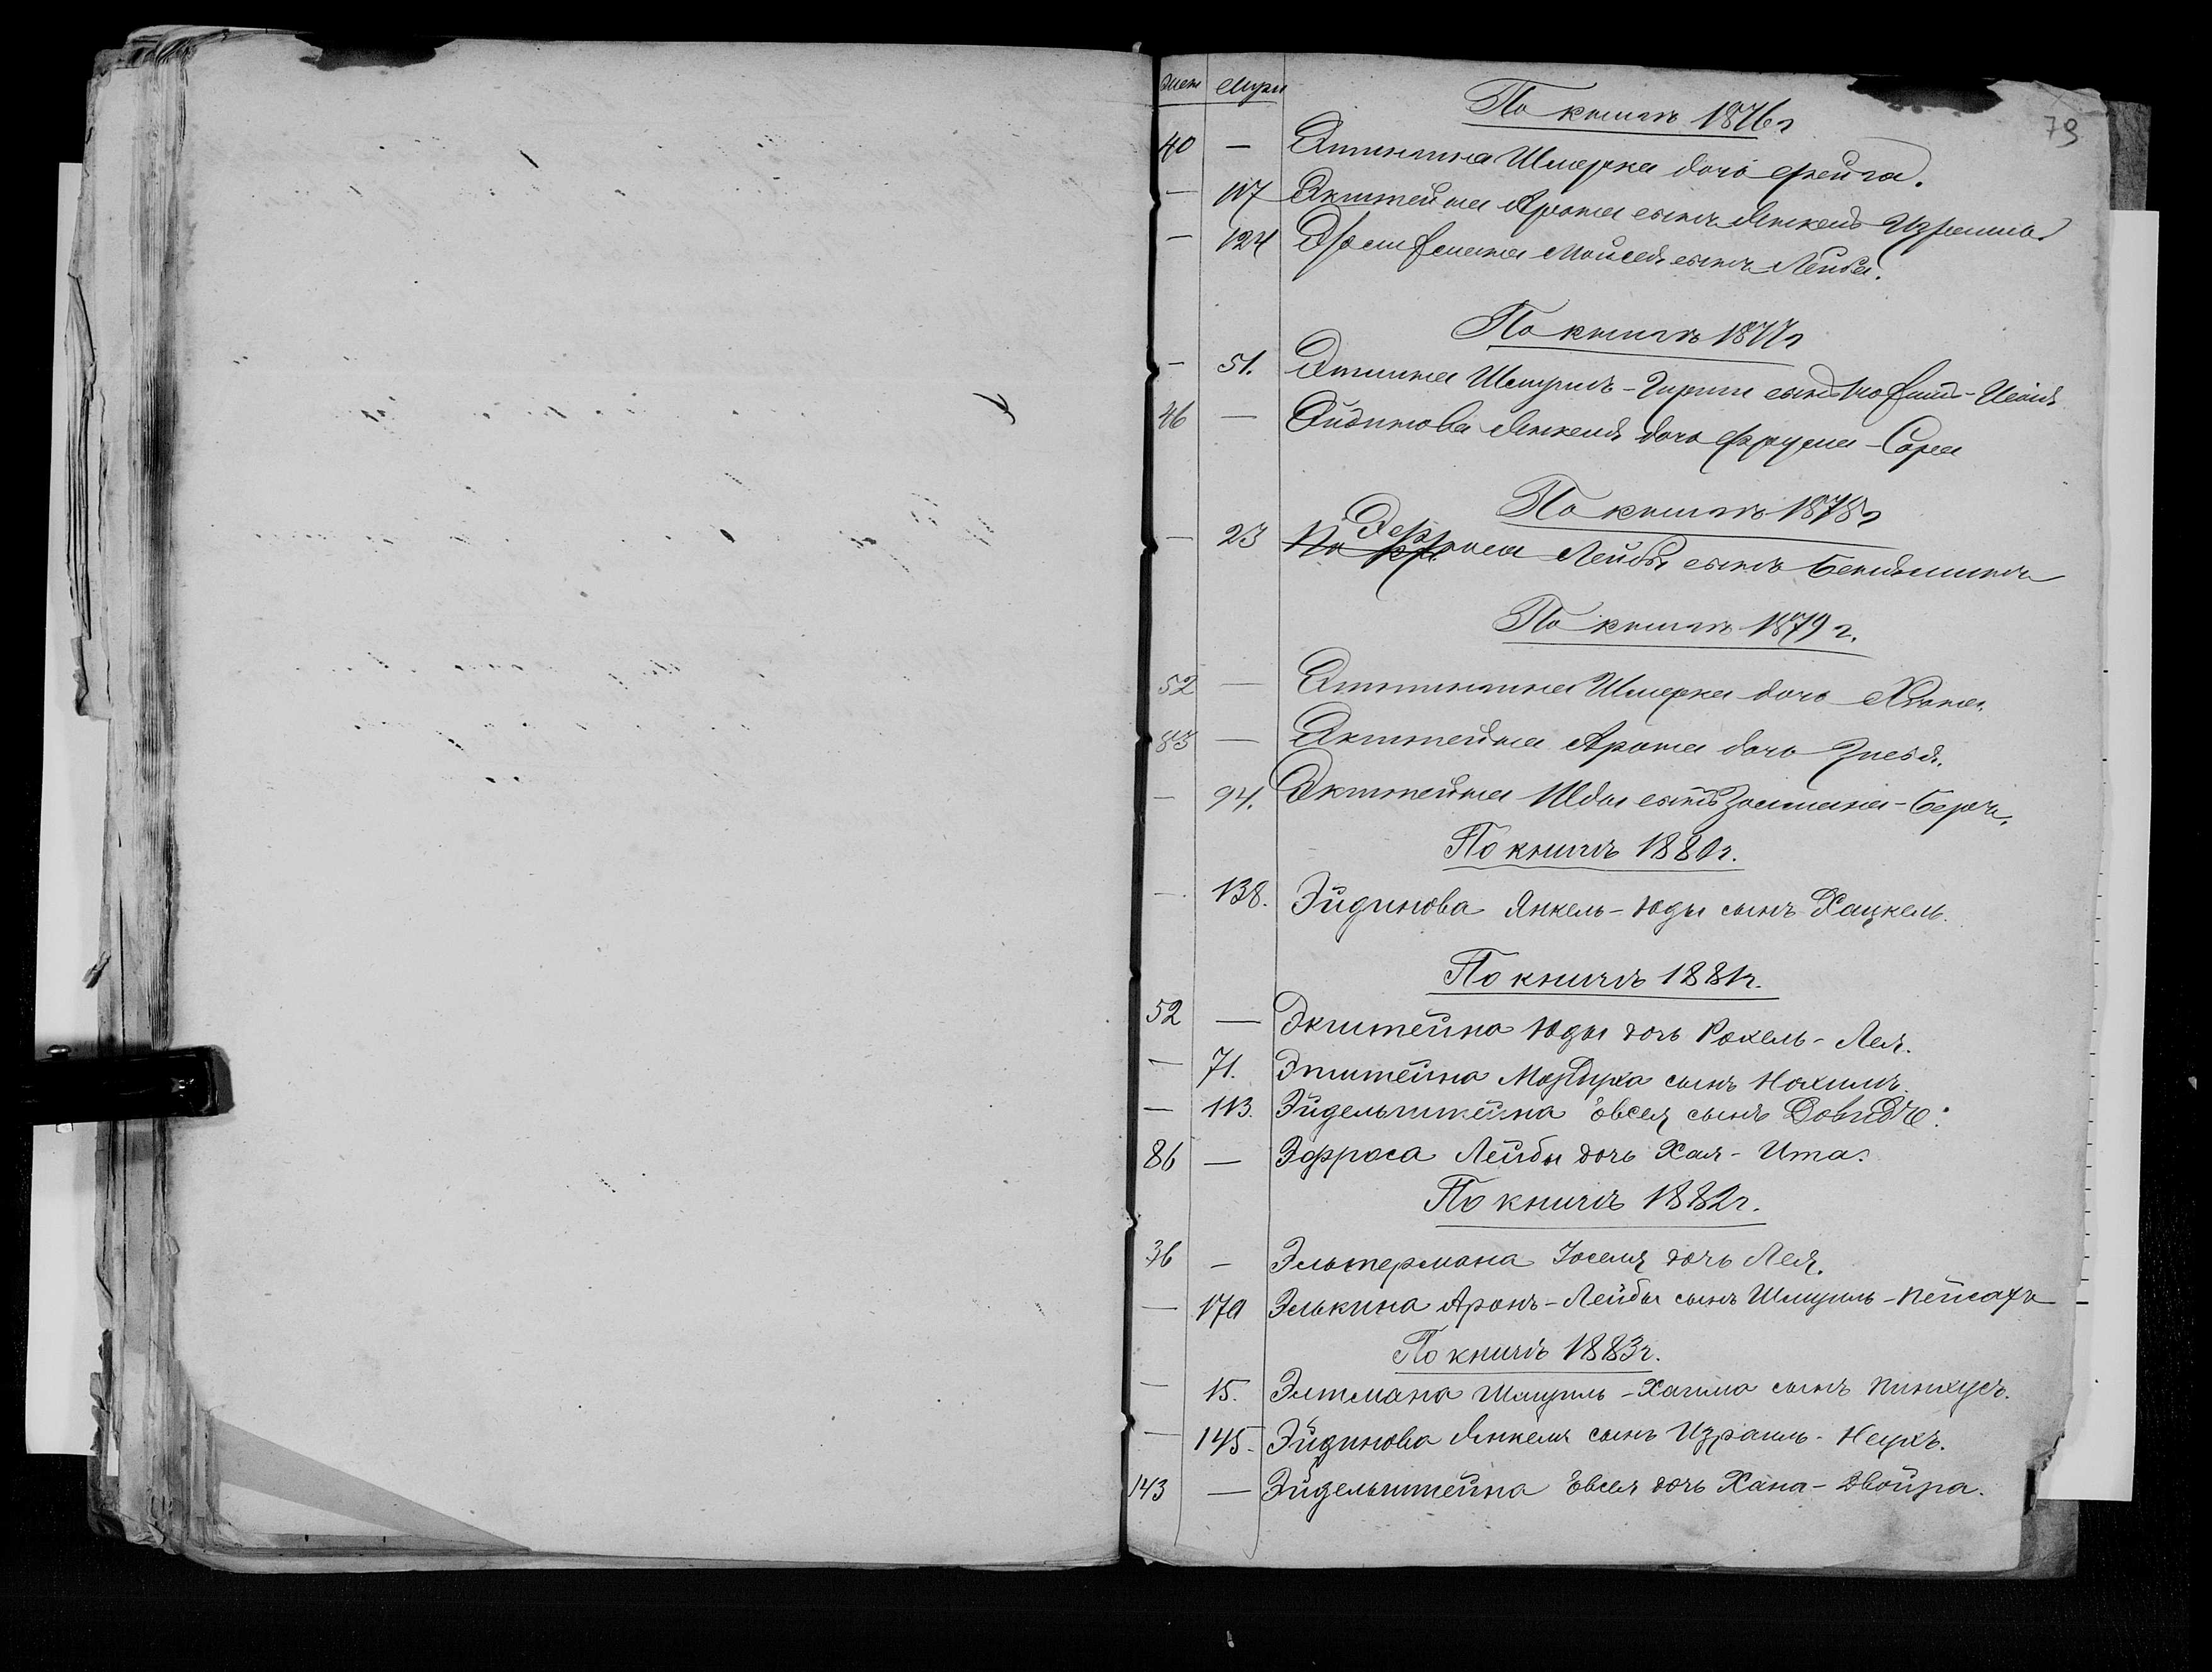 79
Жен Муж
По книгѣ 1876 г
40 — Этингина Шмерка дочь Фейга.
— 117 Экштейна Арона сынъ Янкель Израиль
— 124 Мойсея сынъ Лейба.
По книгѣ 1877 г
— 51. Шмуиль-Гирши сынъ
46 — Эйдинова Янкеля дочь Фрума-Сора
По книгѣ 1878 г
— 23 Эфроса Лейбы сынъ Беньяминъ
По книгѣ 1879 г.
52 — Этингина Шмерка дочь
83 — Экштейна Арона дочь
— 94. Экштейна Юды сынъ Залмана-Беръ.
По книгѣ 1880 г.
— 138. Эйдинова Янкель-Юды сынъ Хацкель.
По книгѣ 1881 г.
52 — Экштейна Юды дочь Рохель-Лея.
— 71. Эпштейна Мордуха сынъ Нохимъ.
— 113. Эйдельштейна Овсея сынъ Довидъ.
86 — Эфроса Лейбы дочь Хая-Ита.
По книгѣ 1882 г.
36 — Эльтермана Іоселя дочь Лея.
— 170 Элькина Аронъ-Лейбы сынъ Шмуиль-Пейсахъ
По книгѣ 1883 г.
— 15. Элтмана Шмуиль-Хаима сынъ Пинхусъ.
— 145. Эйдинова Янкеля сынъ Израиль-Неухъ.
143 — Эйдельштейна Овсея дочь Хана-Двойра.